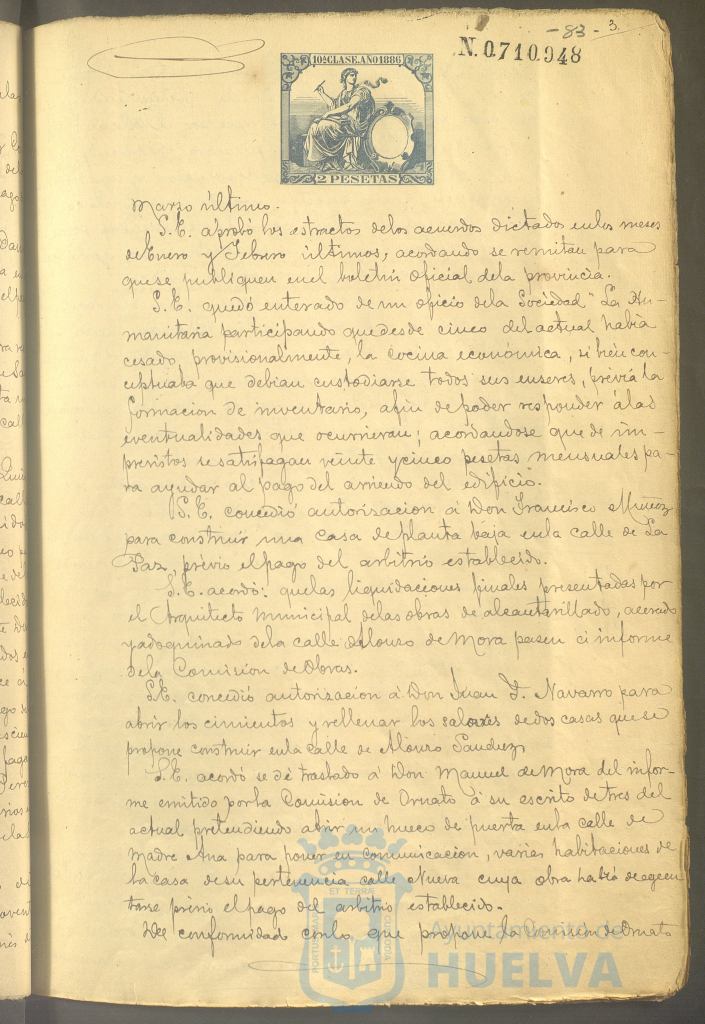 -83- 3.
N. 0.710.948
10ª CLASE. AÑO 1886
2 PESETAS
Marzo último.
S.E. aprobó los estractos delos acuerdos dictados enlos meses
de Enero y Febrero últimos, acordando se remitan para
que se publiquen enel boletin Oficial dela provincia.
S.E. quedó enterado de un oficio dela Sociedad "La Hu-
manitaria participando que desde cinco del actual habia
cesado, provisionalmente, la cocina económica, si bien con-
ceptuaba que debian custodiarse todos sus enseres, prévia la
formacion de inventario, afin de poder responder álas
eventualidades que ocurrieran; acordandose que de im-
previstos se satisfagan veinte y cinco pesetas mensuales pa-
ra ayudar al pago del arriendo del edificio.
S.E. concedió autorizacion á Don Francisco Muñoz
para construir una casa de planta baja enla calle de La
Paz, prévio el pago del arbitrio establecido.
S.E. acordó: quelas liquidaciones finales presentadas por
el Arquitecto Municipal delas obras de alcantarillado, acerado
y adoquinado dela calle de Alonso de Mora pasen á informe
dela Comision de Obras.
S.E. concedió autorizacion á Don Juan F. Navarro para
abrir los cimientos y rellenar los de dos casas que se
propone construir enla calle de Alonso Sanchez,
S.E. acordó se dé traslado á Don Manuel de Mora del infor-
me emitido por la Comision de Ornato á su escrito de tres del
actual pretendiendo abrir un hueco de puerta enla calle de
Madre Ana para poner en comunicacion, varias habitaciones de
la casa de su pertenencia calle Nueva cuya obra habia de egecu
tarse prévio el pago del arbitrio establecido.
De conformidad conlo que propone la Comision de Ornato
PORTUS MARIS ET TERRÆ CUSTODIA
Ayuntamiento de
HUELVA